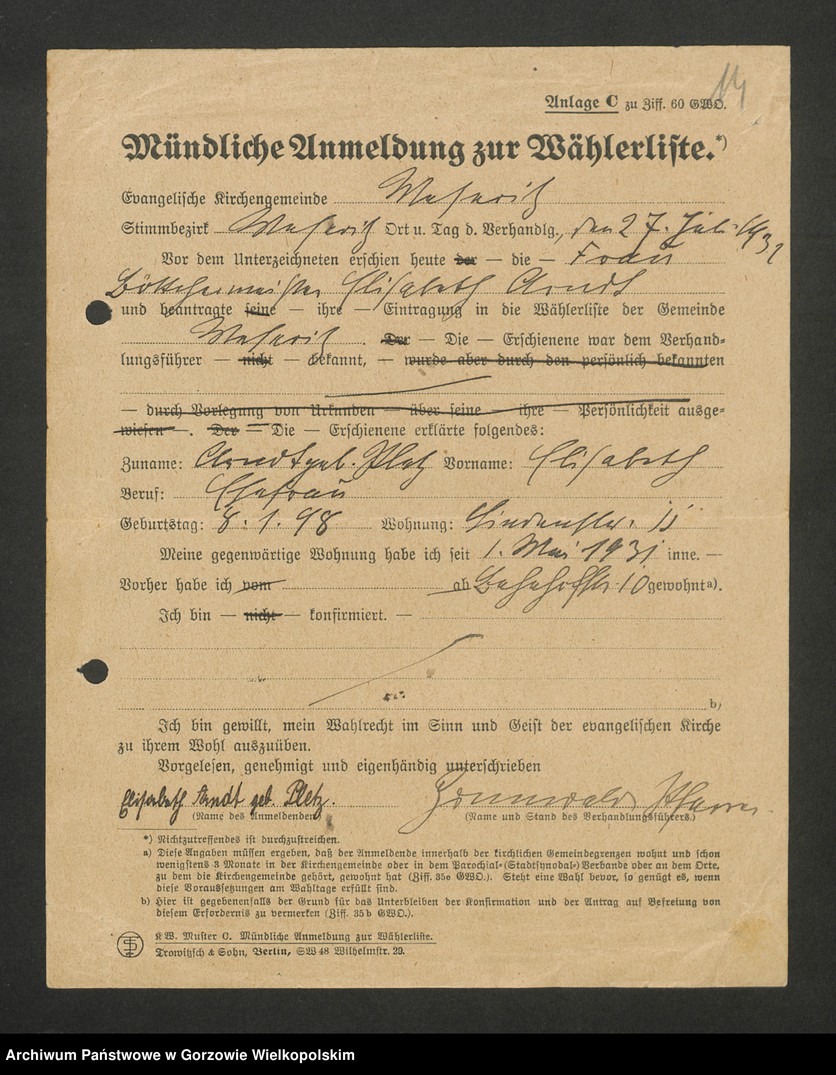 14
Anlage C zu Ziff. 60 GWO.
Mündliche Anmeldung zur Wählerliste.*)
Evangelische Kirchengemeinde Meseritz
Stimmbezirk Meseritz Ort u. Tag d. Verhandlg., den 27. Juli 1932
Vor dem Unterzeichneten erschien heute der — die — Frau
Böttchermeister Elisabeth Arndt
und beantragte seine — ihre — Eintragung in die Wählerliste der Gemeinde
Meseritz. Der — Die — Erschienene war dem Verhand-
lungsführer — nicht — bekannt, — wurde aber durch den persönlich bekannten
— durch Vorlegung von Urkunden — über seine — ihre — Persönlichkeit ausge-
wiesen —. Der — Die — Erschienene erklärte folgendes:
Zuname: Arndt geb. Pletz Vorname: Elisabeth
Beruf: Ehefrau
Geburtstag: 8. 1. 98 Wohnung: Lindenstr. 11
Meine gegenwärtige Wohnung habe ich seit 1. Mai 1931 inne. —
Vorher habe ich vom ab Bahnhofstr. 10 gewohnt a).
Ich bin — nicht — konfirmiert. —
b)
Ich bin gewillt, mein Wahlrecht im Sinn und Geist der evangelischen Kirche
zu ihrem Wohl auszuüben.
Vorgelesen, genehmigt und eigenhändig unterschrieben
Elisabeth Arndt geb. Pletz. Pfarrer
(Name des Anmeldenden) (Name und Stand des Verhandlungsführers.)
*) Nichtzutreffendes ist durchzustreichen.
a) Diese Angaben müssen ergeben, daß der Anmeldende innerhalb der kirchlichen Gemeindegrenzen wohnt und schon
wenigstens 3 Monate in der Kirchengemeinde oder in dem Parochial-(Stadtsynodal-)Verbande oder an dem Orte,
zu dem die Kirchengemeinde gehört, gewohnt hat (Ziff. 35e GWO.). Steht eine Wahl bevor, so genügt es, wenn
diese Voraussetzungen am Wahltage erfüllt sind.
b) Hier ist gegebenenfalls der Grund für das Unterbleiben der Konfirmation und der Antrag auf Befreiung von
diesem Erfordernis zu vermerken (Ziff. 35b GWO.).
K.W. Muster C. Mündliche Anmeldung zur Wählerliste.
Trowitzsch & Sohn, Berlin, SW 48 Wilhelmstr. 29.
Archiwum Państwowe w Gorzowie Wielkopolskim